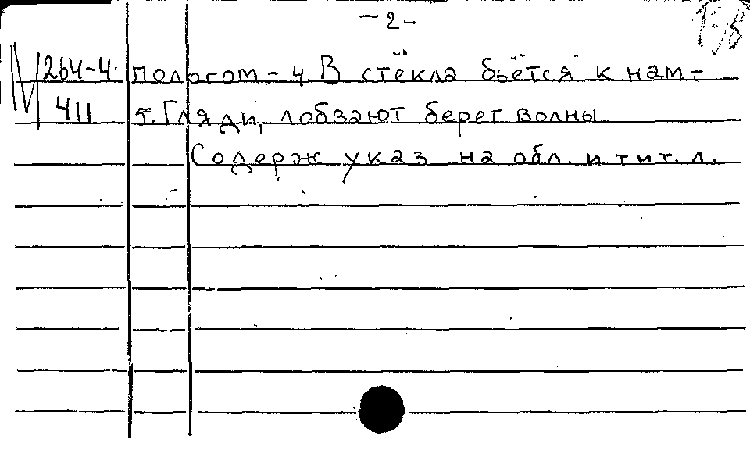 -2-
М 264-4 пологом - 4 В стёкла бьётся к нам -
411 5. Гляди, лобзают берег волны.
Содерж указ на обл. и тит. л.